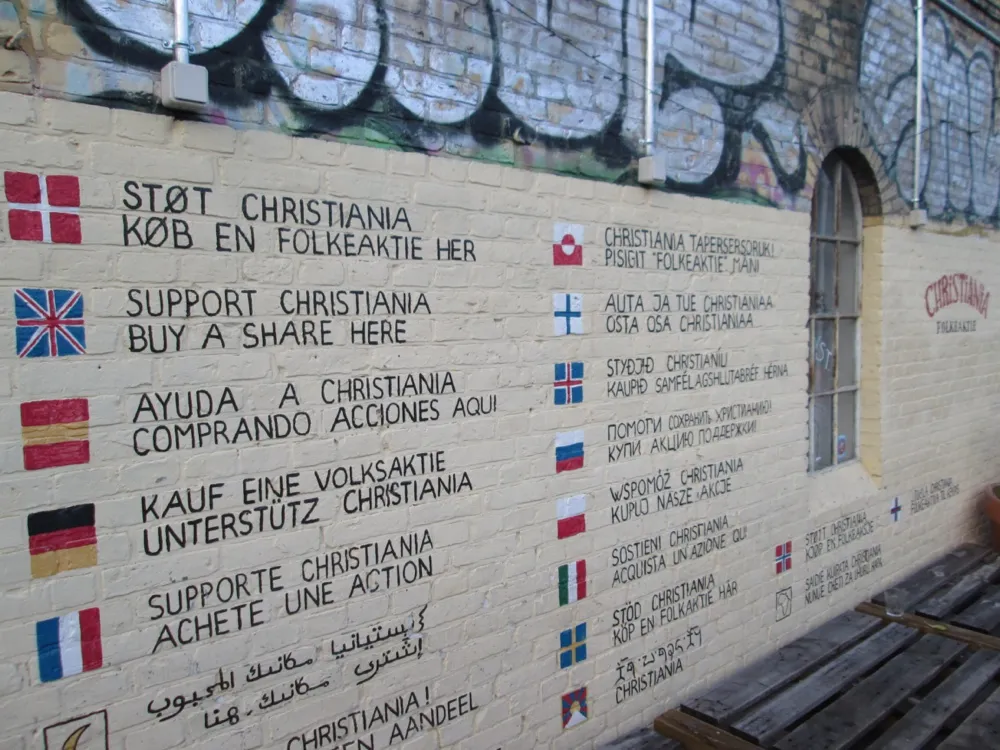 STØT CHRISTIANIA
KØB EN FOLKEAKTIE HER
SUPPORT CHRISTIANIA
BUY A SHARE HERE
AYUDA A CHRISTIANIA
COMPRANDO ACCIONES AQUI
KAUF EINE VOLKSAKTIE
UNTERSTÜTZ CHRISTIANIA
SUPPORTE CHRISTIANIA
ACHETE UNE ACTION
كريستيانيا مكانك المحبوب
إشتري مكانك هنا
CHRISTIANIA!
EEN AANDEEL
CHRISTIANIA TAPERSERSORUK!
PISIGIT "FOLKEAKTIE" MANI
AUTA JA TUE CHRISTIANIAA
OSTA OSA CHRISTIANIAA
STYÐJIÐ CHRISTIANÍU
KAUPIÐ SAMFÉLAGSHLUTABRÉF HÉRNA
ПОМОГИ СОХРАНИТЬ ХРИСТИАНИЮ!
КУПИ АКЦИЮ ПОДДЕРЖКИ!
WSPOMÓŻ CHRISTIANIA
KUPUJ NASZE AKCJE
SOSTIENI CHRISTIANIA
ACQUISTA UN'AZIONE QUI
STÖD CHRISTIANIA
KÖP EN FOLKAKTIE HÄR
CHRISTIANIA
STØTT CHRISTIANIA
KJØP EN FOLKEAKSJE
SAIDIE KUIBATA CHRISTIANIA
CHRISTIANIA
FOLKEAKTIE